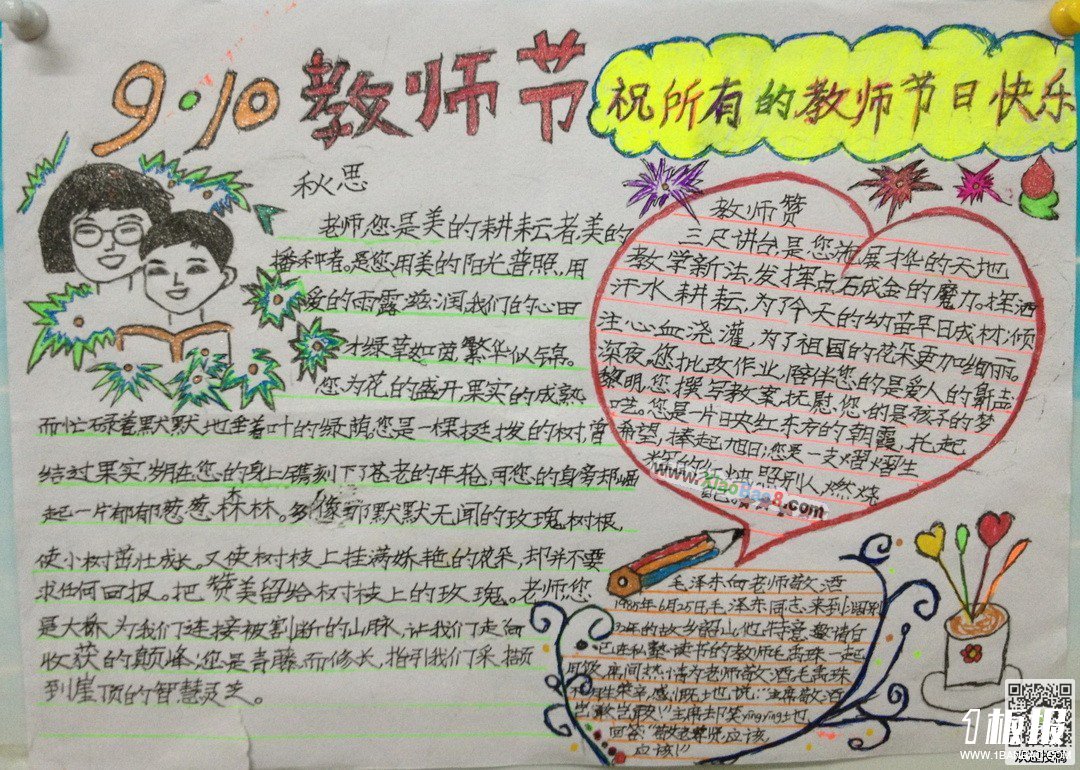 9·10 教师节
祝所有的教师节日快乐
秋思
老师,您是美的耕耘者,美的
播种者。是您用美的阳光普照,用
爱的雨露滋润,我们的心田
才绿草如茵,繁华似锦。
您,为花的盛开,果实的成熟
而忙碌着,默默地垂着叶的绿荫。您是一棵挺拔的树,曾
结过果实,岁月在您的身上镌刻下了苍老的年轮,用您的身旁却崛
起一片郁郁葱葱森林。多像那默默无闻的玫瑰树根,
使小树茁壮成长。又使树枝上挂满娇艳的花朵,却并不要
求任何回报。把赞美留给树枝上的玫瑰。老师,您
是大桥,为我们连接被割断的山脉,让我们走向
收获的巅峰;您是青藤而修长,指引我们采撷
到崖顶的智慧灵芝。
教师赞
三尺讲台,是您施展才华的天地,
教学新法,发挥点石成金的魔力。挥洒
汗水耕耘,为了今天的幼苗早日成材;倾
注心血浇灌,为了祖国的花朵更加绚丽。
深夜,您批改作业,陪伴您的是爱人的鼾声
黎明,您撰写教案,抚慰您的是孩子的梦
呓。您是一片映红东方的朝霞,托起
希望,捧起旭日;您是一支熠熠生
照别人,燃烧
www.XiaoBao8.com
毛泽东向老师敬酒
年6月25日毛泽东同志来到
年的故乡韶山,他特意邀请自
己在私塾读书的教师毛禹珠一起
热情为老师敬酒,毛禹珠
感慨地说:"主席敬酒
岂敢岂敢!"主席却笑yingying地
回答:"敬老尊贤应该,
应该!"
1板报
WWW.1BANBAO.COM
欢迎投稿